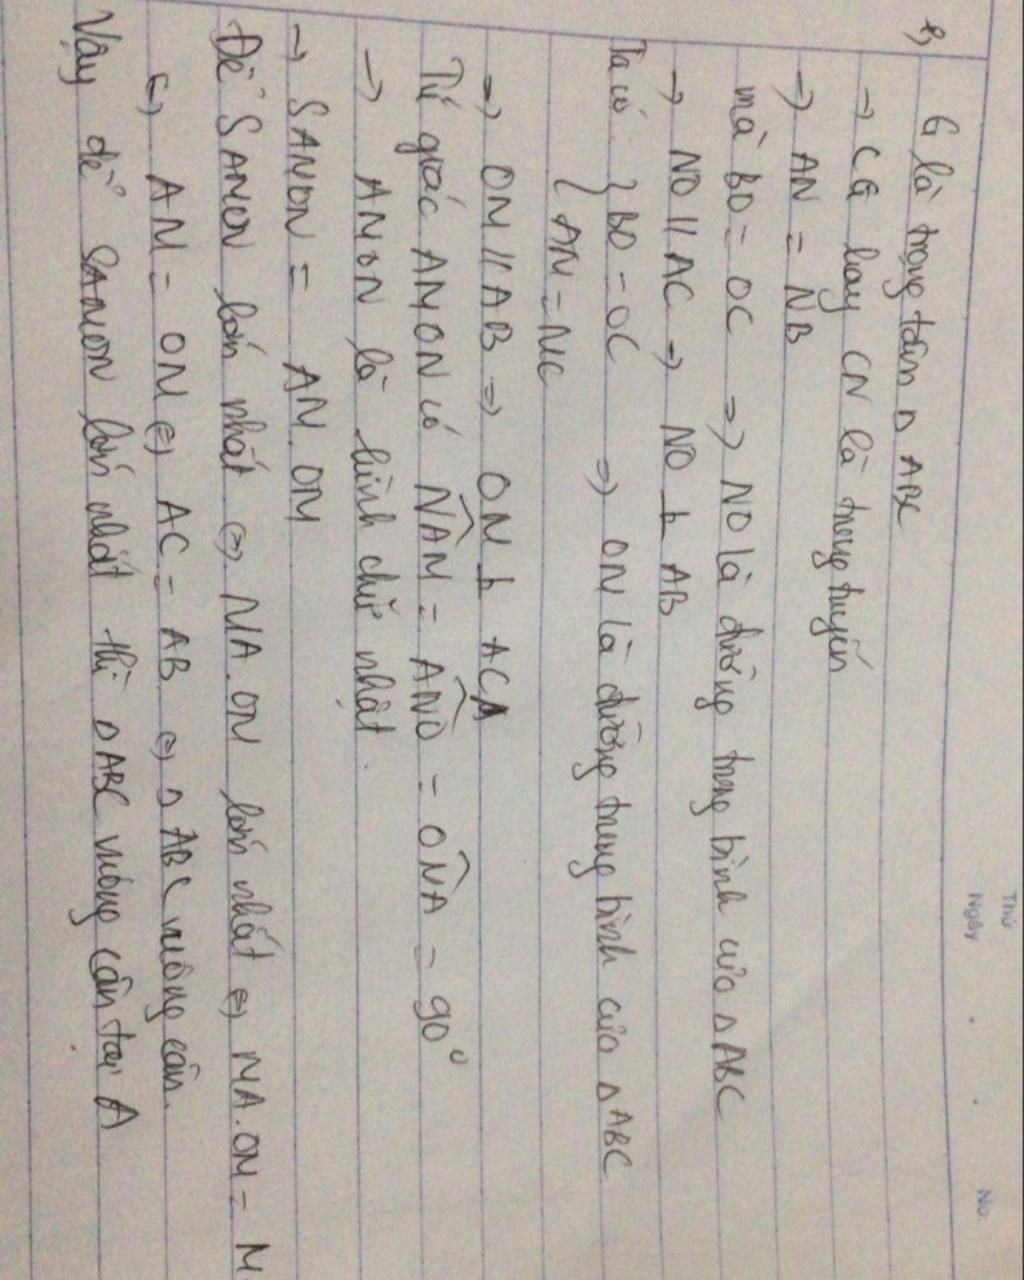 Thứ
Ngày
No.
b)
G là trọng tâm Δ ABC
→ CG hay CN là trung tuyến
→ AN = NB
mà BO = OC ⇒ NO là đường trung bình của Δ ABC
→ NO // AC ⇒ NO ⊥ AB
Ta có { BO = OC ⇒ ON là đường trung bình của Δ ABC
{ AM = MC
⇒ OM // AB ⇒ OM ⊥ AC
Tứ giác AMON có NAM = ANO = OMA = 90°
→ AMON là hình chữ nhật.
→ SAMON = AM.OM
Để SAMON lớn nhất ⇔ MA.OM lớn nhất ⇔ MA.OM = M
⇔ AM = OM ⇔ AC = AB ⇔ Δ ABC vuông cân.
Vậy để SAMON lớn nhất thì Δ ABC vuông cân tại A